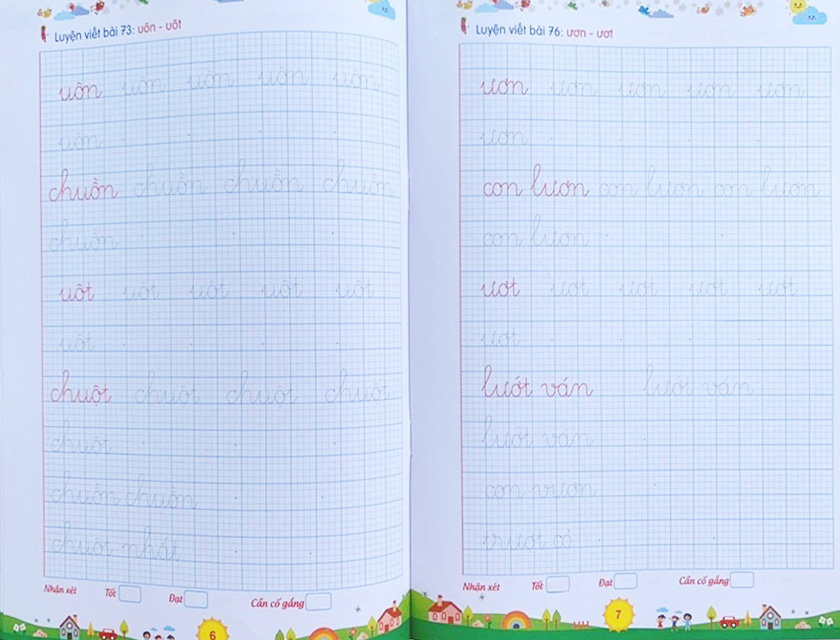 Luyện viết bài 73: uôn - uôt
uôn uôn uôn uôn uôn
uôn
chuồn chuồn chuồn chuồn
chuồn
uôt uôt uôt uôt uôt
uôt
chuột chuột chuột chuột
chuột
chuồn chuồn
chuột nhắt
Nhận xét Tốt Đạt Cần cố gắng
6
Luyện viết bài 76: ươn - ươt
ươn ươn ươn ươn ươn
ươn
con lươn con lươn con lươn
con lươn
ươt ươt ươt ươt ươt
ươt
lướt ván lướt ván
lướt ván
con vượn
trượt cỏ
Nhận xét Tốt Đạt Cần cố gắng
7